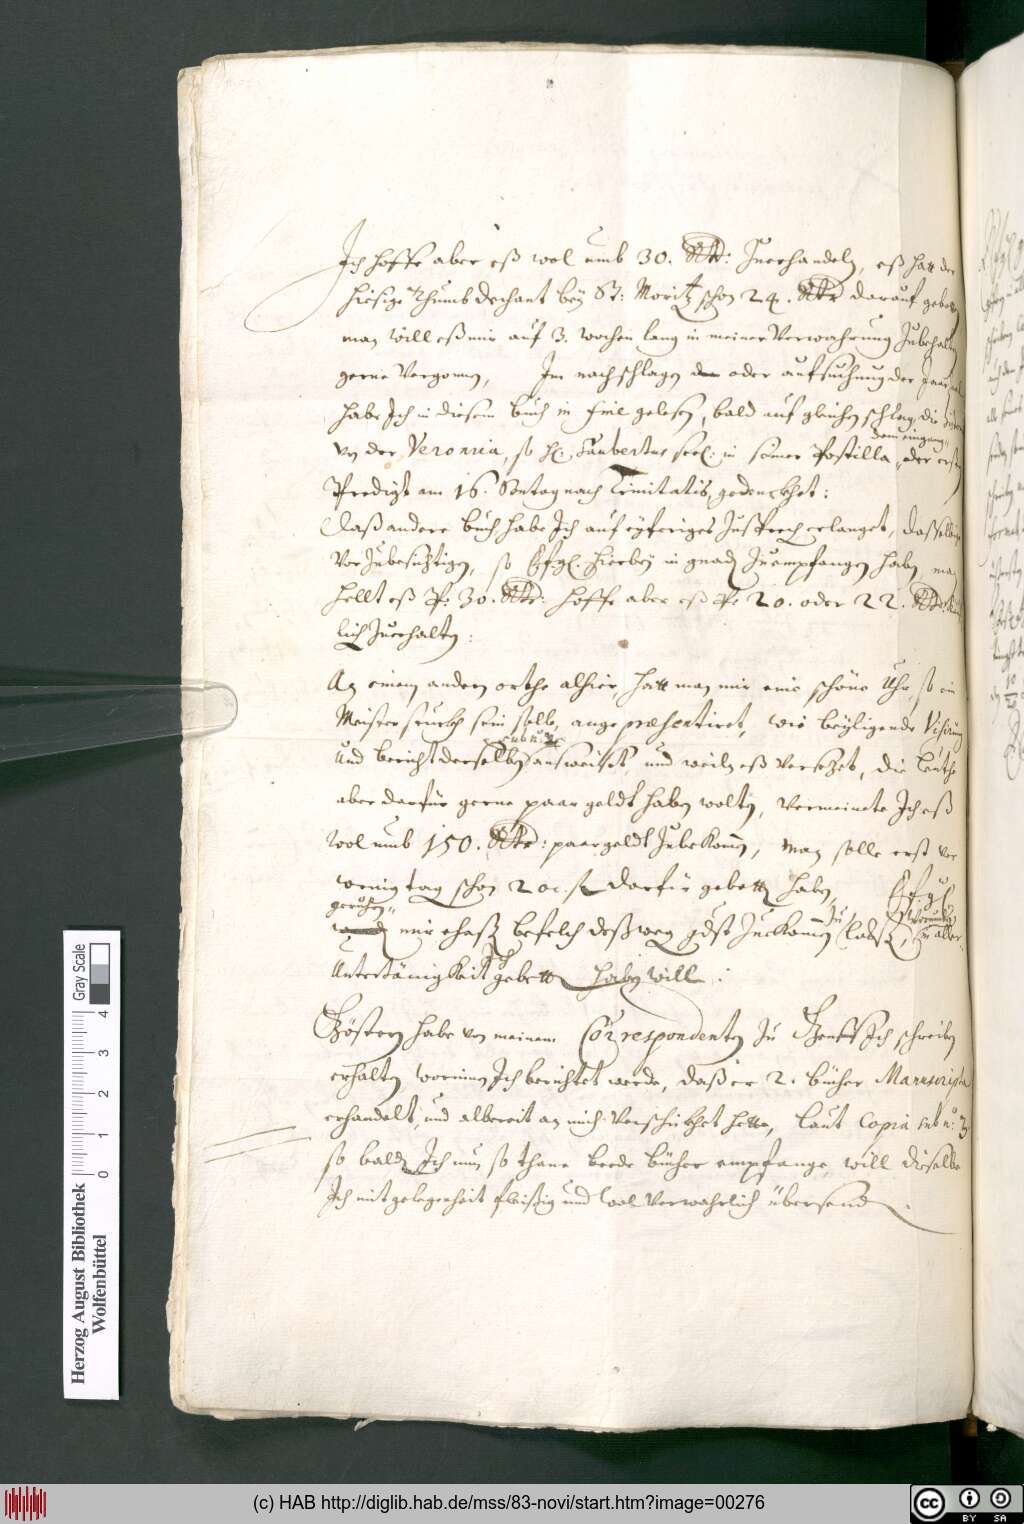 Ich hoffe aber eß wol umb 30. Rtlr: Zuerhandeln, eß hatt der
hiesige Thumb dechant bey St: Moritz schon 24. Rtlr darauf gebotten
man will eß mir auf 3. wochen lang in meiner Verwahrung Zubehalten
gerne Vergonnen, Im nachschlagen oder aufsuchung der
habe Ich in diesem buch in fine gelesen, bald auf gleichen schlag, die
von der Veronica, so H. Saubertus seel: in seiner Postilla, der ersten
dem eingang
Predigt am 16. Sontag nach Trinitatis, gedenckhet:
Daß andere buch habe Ich auf eyferiges Zusprechen erlanget, dasselbige
Vor Zubesichtigen, so Efgl. hierbey in gnaden Zuempfangen haben, man
hellt eß P: 30. Rtlr: hoffe aber eß P: 20. oder 22. Rtlr:
lich Zuerhalten:
An einem andern orthe alhier hatt man mir eine schöne Uhr, so ein
Meister stuckh sein solle, angepræsentiret, wie beyligende Visirung
sub n:
Und bericht derselben ausweiset, und weiln eß Versezet, die leuthe
aber darfür gerne paar geldt haben wolten, Vermeinete Ich eß
wol umb 150. Rtlr: paar geldt Zubekommen, man solle erst vor
wenig tag schon 200. fl darfür gebotten haben, Efgl
geruhen
mir ehast befelch deßweg gdst Zuekommen Zu laßen,
Unterthänigkeit gebetten haben will:
Gestern habe von meinem Correspondenten Zu Genff Ich schreiben
erhalten worinnen Ich berichtet werde, daß er 2. bücher Manuscripta
erhandelt, und albereit an mich Verschickhet hette, laut Copia sub n: 3.
so balden Ich nun so thane beede bücher empfange, will dieselbe
Ich mit gelegenheit fleißig und wol Verwahrlich übersenden.
Gray Scale
0 1 2 3 4
Herzog August Bibliothek
Wolfenbüttel
(c) HAB http://diglib.hab.de/mss/83-novi/start.htm?image=00276
cc BY SA